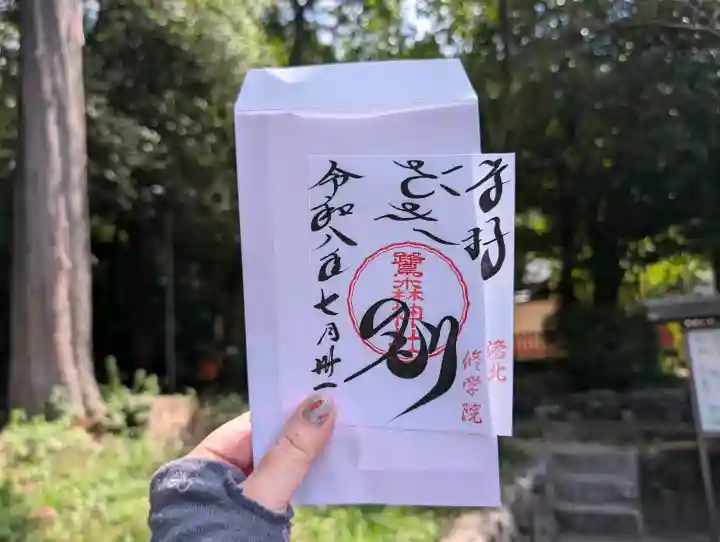 奉拝
洛北
修学院
鷺森神社
令和八年七月卅一